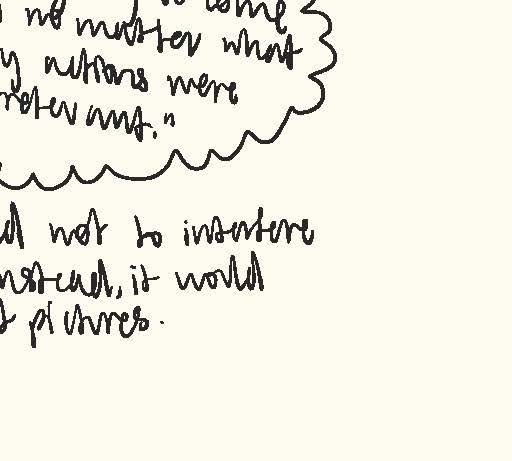 to come
no matter what
actions were
not to interfere
instead, it would
pictures.